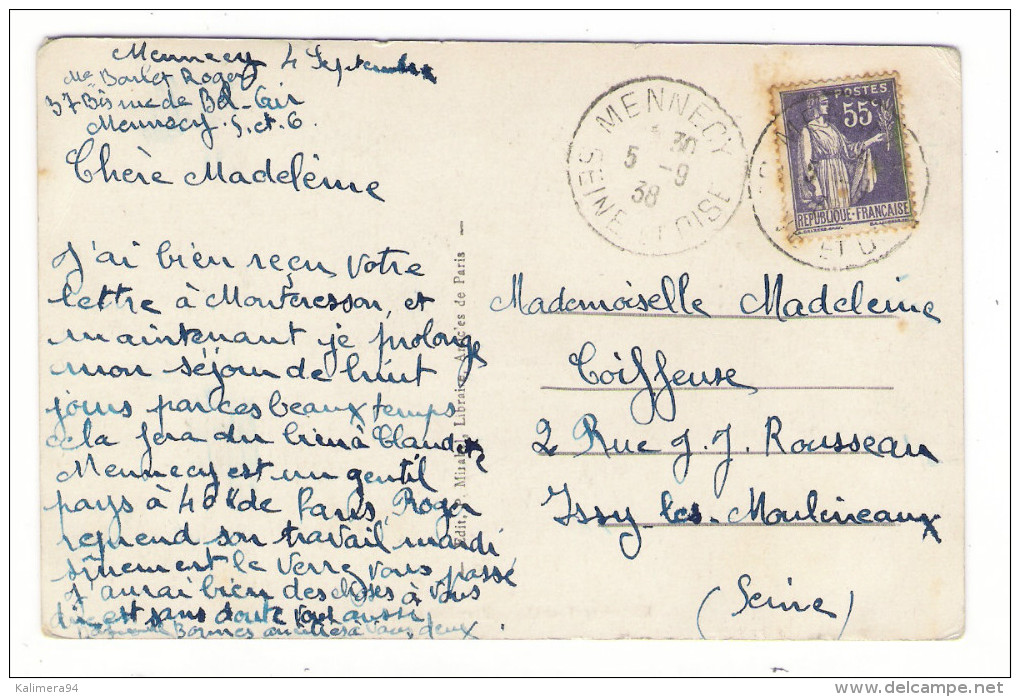 Mennecy 4 Septembre
Me Barlet Roger
37 Bis rue de Bel-air
Mennecy. S. et. O.
Chère Madeleine
J'ai bien reçu votre
lettre à Montresson, et
maintenant je prolonge
mon séjour de huit
jours par ces beaux temps
cela fera du bien à Claudette
Mennecy est un gentil
pays à 40 K de Paris, Roger
reprend son travail mardi
sûrement le verrez vous passé
J'aurai bien des choses à vous
dire et sans doute vous aussi
Bonnes amitiés à vous deux
Edit. P. Mirabel, Libraire, Artic'es de Paris —
MENNECY
30
5 -9
38
SEINE ET OISE
POSTES
55c
REPUBLIQUE-FRANCAISE
Mademoiselle Madeleine
Coiffeuse
2 Rue J. J. Rousseau
Issy-les-Moulineaux
(Seine)
Kalimera94
www.delcampe.net